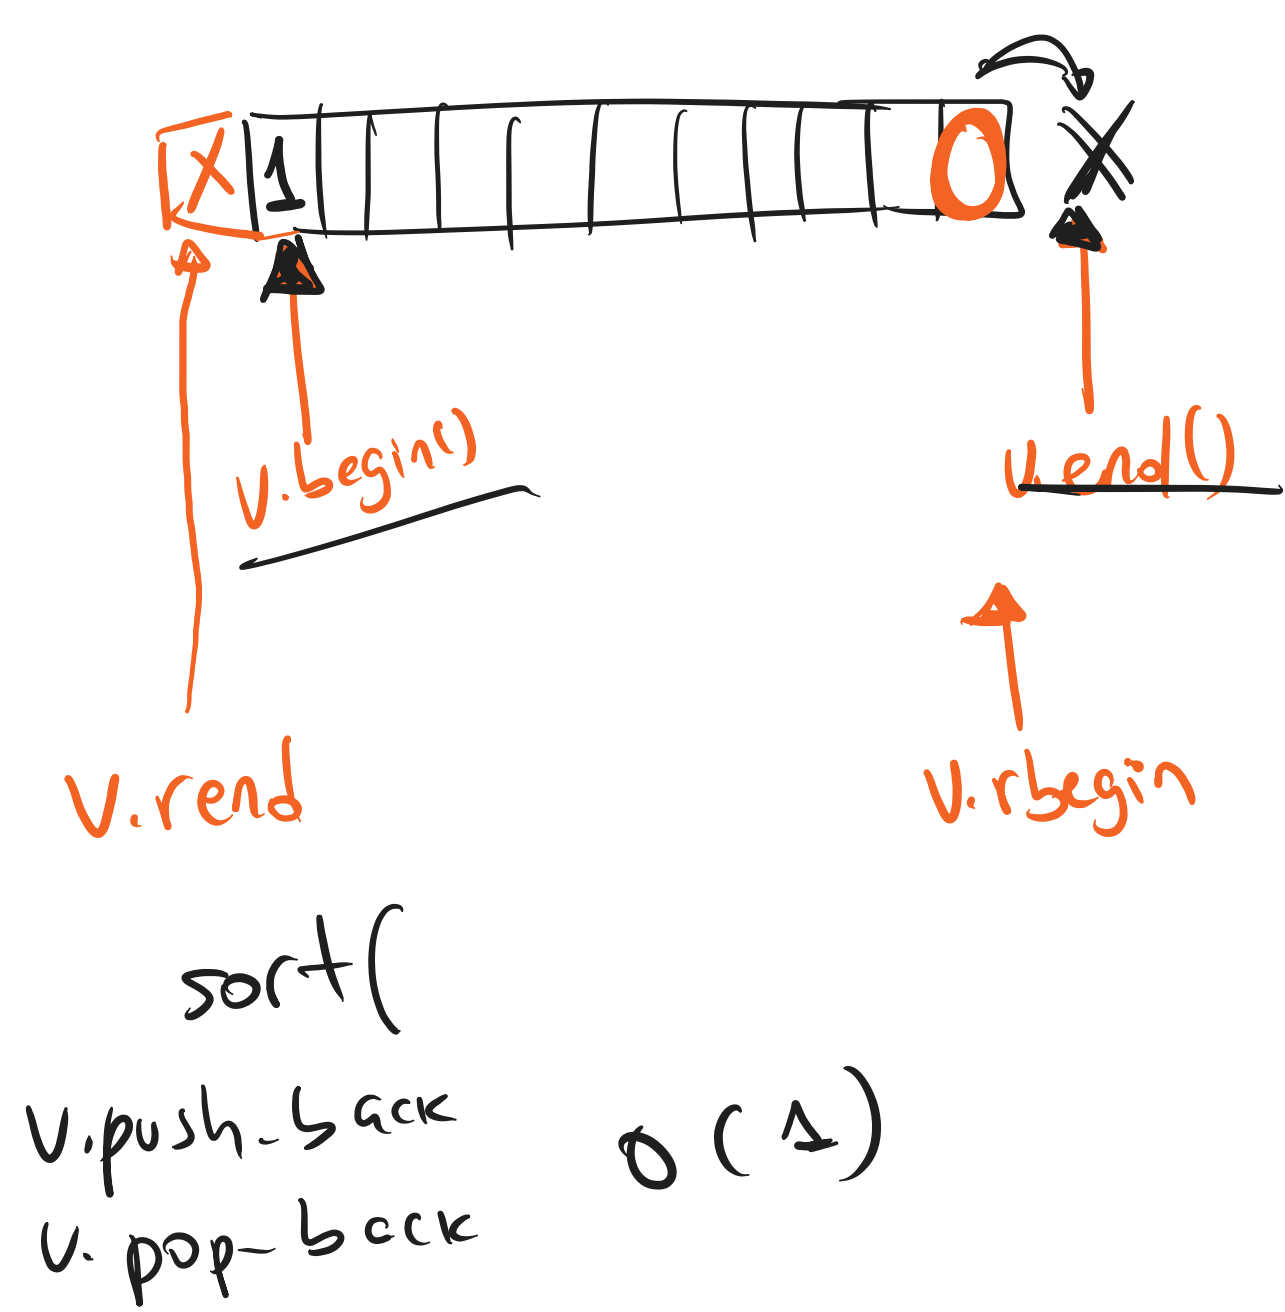 X 1 0 X
v.begin() v.end()
v.rend v.rbegin
sort(
v.push_back O(1)
v.pop_back